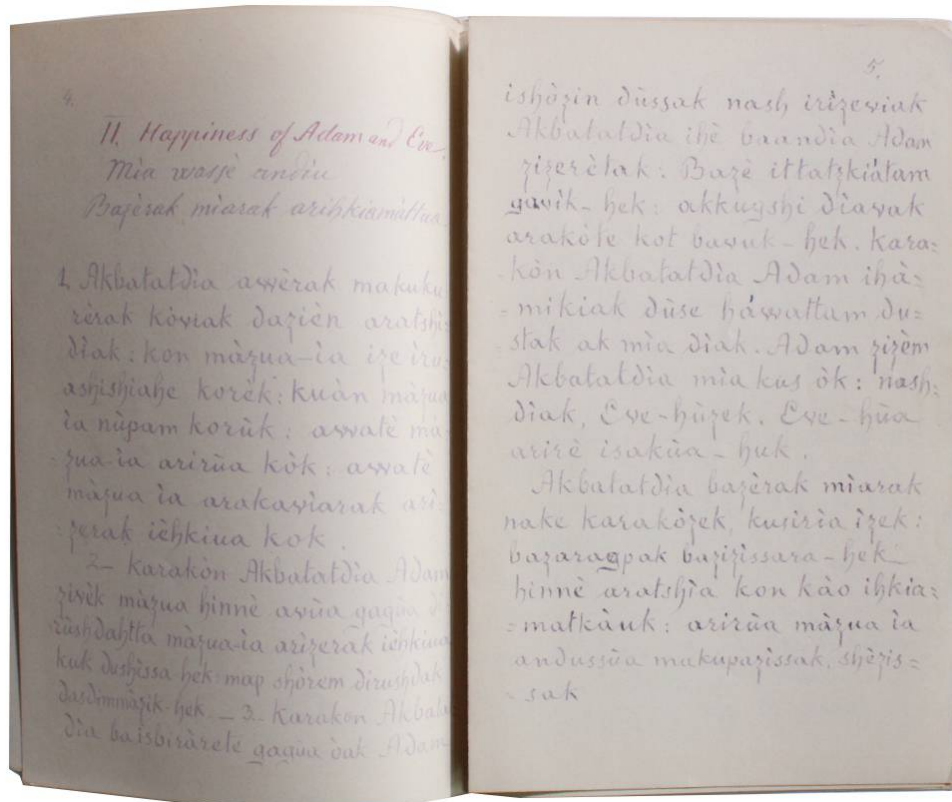 4.
II. Happiness of Adam and Eve.
Mìa wassè andiu
Bazèrak mìarak arihkiamàttua
1. Akbatatdìa awèrak makuku
rèrak kòwiak dazièn aratshi=
dìak: kon màzua-ìa ize iru=
ashishiahe korèk: kuàn màzua
ìa nùpam korùk: awatè mà=
=zua-ìa arirùa kòk: awatè
màzua ìa arakawìarak ari=
=zerak ièhkiua kok.
2_ Karakòn Akbatatdìa Adam
zivèk màzua hinnè awùa gagùa di
rùshdahtta màzua-ìa arìzerak ièhkiua
kuk dushèssa-hek map shòrem dirushdak
dasdimmàzik-hek _ 3_ Karakon Akbata
dìa baisbiràrete gagùa òak Adam
5.
ishòzin dùssak nash irìzewiak
Akbatatdìa ihè baandìa Adam
zizerètak: Bazè ittatzkiátam
gawìk-hek: akkugshi dìawak
arakòte kot bawuk-hek. Kara=
kòn Akbatatdìa Adam ihà=
=mikiak dùse háwattam du=
stak ak mìa dìak. Adam zizèm
Akbatatdìa mìa kus òk: nash=
dìak, Ewe-hùzek. Ewe-hùa
arirè isakùa-huk.
Akbatatdìa bazèrak mìarak
nake karakòzek, kusirìa ìzek:
bazaragpak bazizìssara-hek
hinnè aratshìa kon kào ihkia=
=matkàuk: arirùa màzua ìa
andussùa makupazìssak, shèzis=
=sak